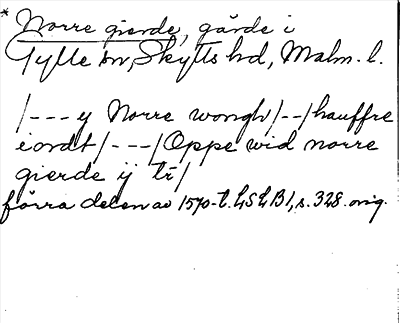 * Norre gierde, gärde i
Gylle sn, Skytts hd, Malm. l.
/--- y Norre wongh/--/hauffre
iordt/---/Oppe wid norre
gierde ij tr/
förra delen av 1570-t. LSLB1, s. 328. orig.